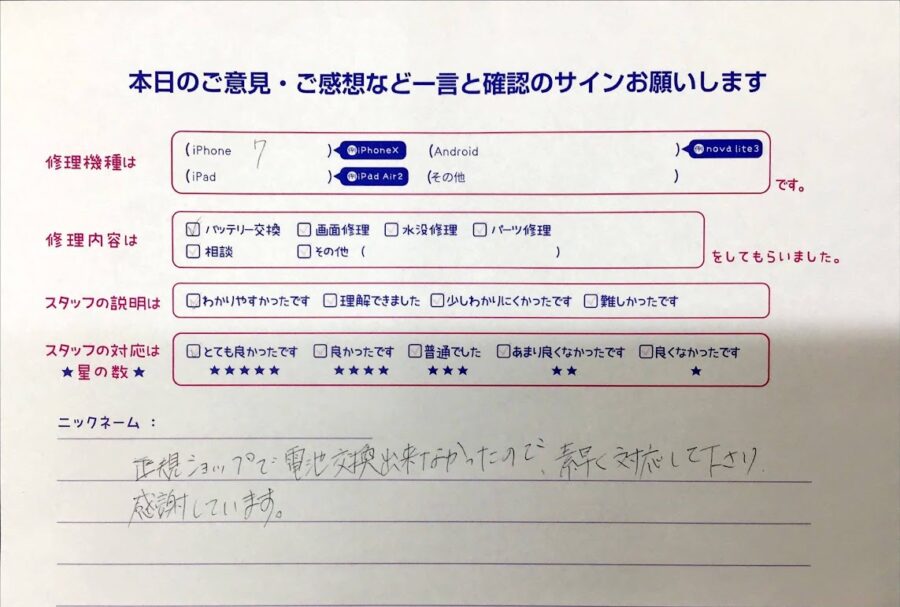 本日のご意見・ご感想など一言と確認のサインお願いします
修理機種は (iPhone 7 ) iPhoneX (Android ) nova lite3
(iPad ) iPad Air2 (その他 ) です。
修理内容は バッテリー交換 画面修理 水没修理 パーツ修理
相談 その他 ( ) をしてもらいました。
スタッフの説明は わかりやすかったです 理解できました 少しわかりにくかったです 難しかったです
スタッフの対応は とても良かったです 良かったです 普通でした あまり良くなかったです 良くなかったです
★星の数★ ★★★★★ ★★★★ ★★★ ★★ ★
ニックネーム：
正規ショップで電池交換出来なかったので、素早く対応して下さり
感謝しています。